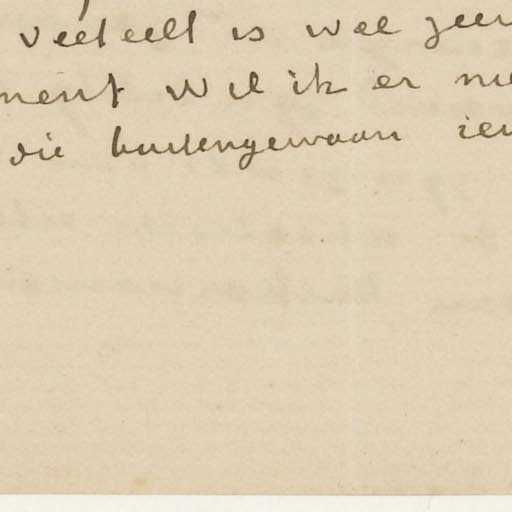 verteelt is wel geen
ment Wil ik er ni
die buitengewoon ien